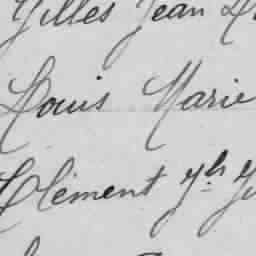 Gilles Jean
Louis Marie
Clément